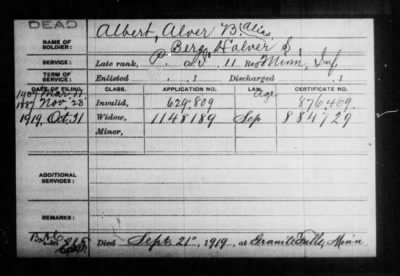 DEAD
Albert, Alver B. Alias
NAME OF SOLDIER: Berg, Halver
SERVICE: Late rank, P. Co. I, 11 Reg Minn. Inf.
TERM OF SERVICE: Enlisted , 1 Discharged , 1
DATE OF FILING. CLASS. APPLICATION NO. LAW. CERTIFICATE NO.
1907 Mar. Age
1887 Nov. 23. Invalid, 629.809 876.469.
1919, Oct. 21 Widow, 1148189 Sep 884729
Minor,
ADDITIONAL SERVICES:
REMARKS:
Died Sept 21", 1919, at Granite Falls, Minn